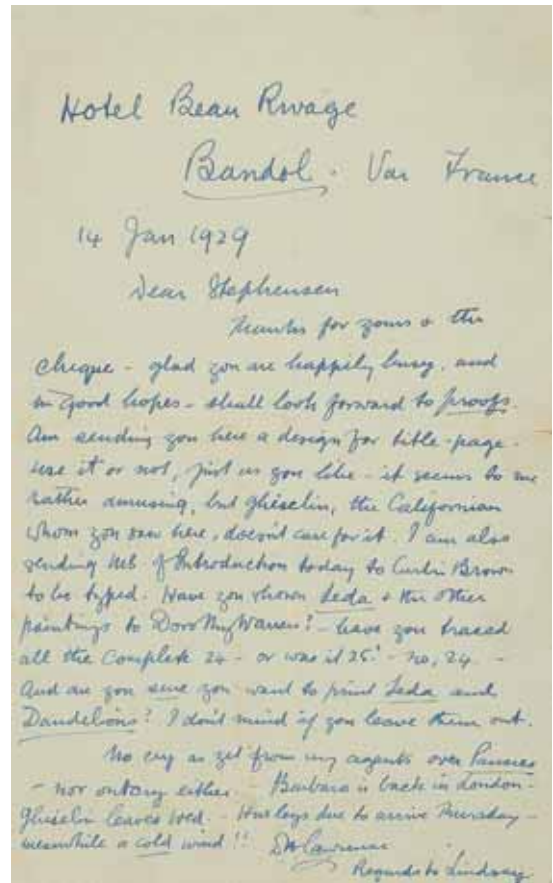 Hotel Beau Rivage
Bandol - Var France
14 Jan 1929
Dear Stephensen
Thanks for yours & the
cheque - glad you are happily busy, and
in good hopes - shall look forward to proofs.
Am sending you here a design for title-page -
use it or not, just as you like - it seems to me
rather amusing, but Ghiselin, the Californian
whom you saw here, doesn't care for it. I am also
sending MS of Introduction today to Curtis Brown
to be typed. Have you shown Leda & the other
paintings to Dorothy Warren? - have you traced
all the complete 24 - or was it 25? - no, 24 -
And are you sure you want to print Leda and
Dandelions? I don't mind if you leave them out.
No cry as yet from my agents over Pansies
- nor outcry either - Barbara is back in London -
Ghiselin leaves Wed. - Huxleys due to arrive Thursday -
meanwhile a cold wind!! DH Lawrence
Regards to Lindsay